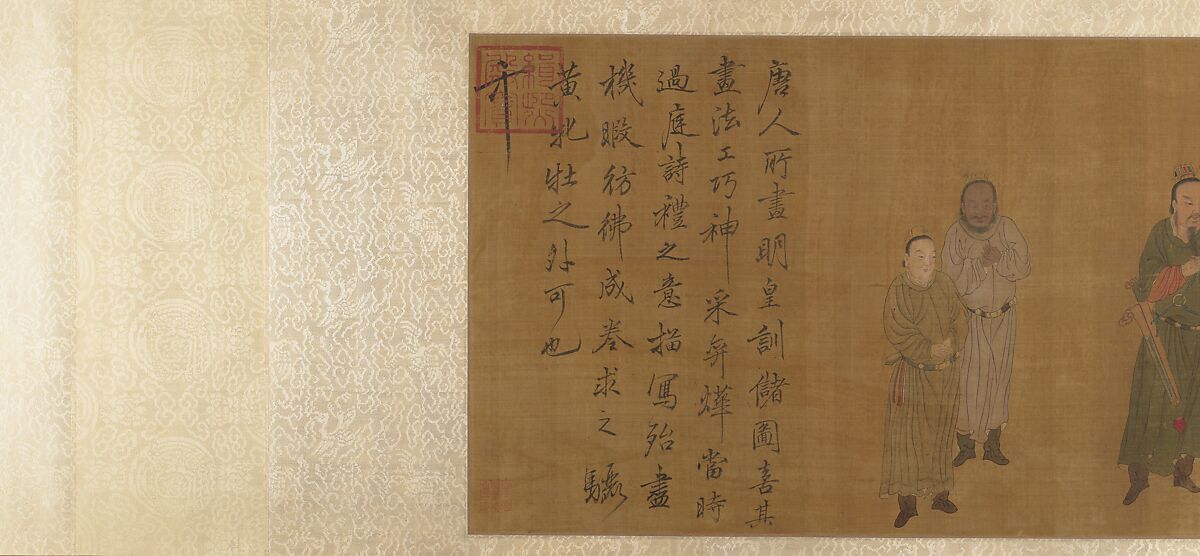 唐人所畫明皇訓儲圖喜其
畫法工巧神采弈燁當時
過庭詩禮之意描寫殆盡
機暇彷彿成卷求之驪
黃牝牡之外可也
緝熙殿寶